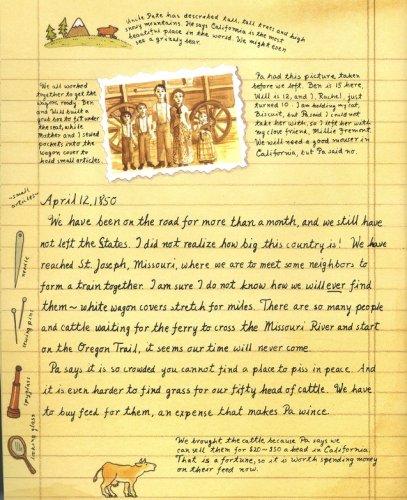 Uncle Pete has described tall, tall trees and high
snowy mountains. He says California is the most
beautiful place in the world. We might even
see a grizzly bear.
We all worked
together to get the
wagon ready. Ben
and Will built a
grub box to fit under
the seat, while
Mother and I sewed
pockets into the
wagon cover to
hold small articles.
Pa had this picture taken
before we left. Ben is 15 here,
Will is 12, and I, Rachel, just
turned 10. I am holding my cat,
Biscuit, but Pa said I could not
take her with, so I left her with
my close friend, Millie Fremont.
We will need a good mouser in
California, but Pa said no.
~small
articles~
needle
sewing pins
spyglass
looking glass
April 12, 1850
We have been on the road for more than a month, and we still have
not left the States. I did not realize how big this country is! We have
reached St. Joseph, Missouri, where we are to meet some neighbors to
form a train together. I am sure I do not know how we will ever find
them ~ white wagon covers stretch for miles. There are so many people
and cattle waiting for the ferry to cross the Missouri River and start
on the Oregon Trail, it seems our time will never come.
Pa says it is so crowded you cannot find a place to piss in peace. And
it is even harder to find grass for our fifty head of cattle. We have
to buy feed for them, an expense that makes Pa wince.
We brought the cattle because Pa says we
can sell them for $20~$50 a head in California.
That is a fortune, so it is worth spending money
on their feed now.